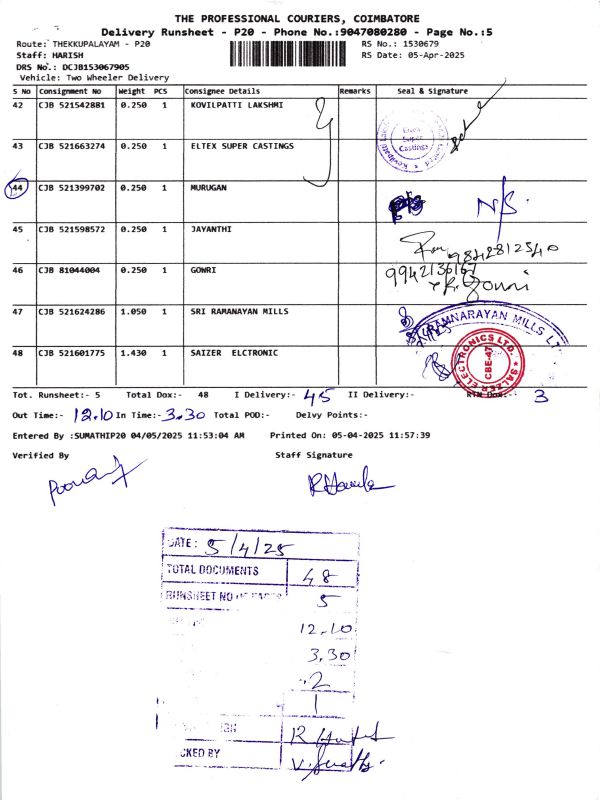 THE PROFESSIONAL COURIERS, COIMBATORE
Delivery Runsheet - P20 - Phone No.:9047080280 - Page No.:5
Route: THEKKUPALAYAM - P20
RS No.: 1530679
Staff: HARISH
RS Date: 05-Apr-2025
DRS No.: DCJB153067905
Vehicle: Two Wheeler Delivery
S No Consignment No Weight PCS Consignee Details Remarks Seal & Signature
42 CJB 521542881 0.250 1 KOVILPATTI LAKSHMI
43 CJB 521663274 0.250 1 ELTEX SUPER CASTINGS
Eltex Super Castings
44 CJB 521399702 0.250 1 MURUGAN N/S
45 CJB 521598572 0.250 1 JAYANTHI 9842812540
46 CJB 81044004 0.250 1 GOWRI 9942136167
Gowri
47 CJB 521624286 1.050 1 SRI RAMANAYAN MILLS
RAMNARAYAN MILLS
48 CJB 521601775 1.430 1 SAIZER ELCTRONIC
SALZER ELECTRONICS LTD. CBE-47
Tot. Runsheet:- 5 Total Dox:- 48 I Delivery:- 45 II Delivery:- RTN Dox:- 3
Out Time:- 12.10 In Time:- 3.30 Total POD:- Delvy Points:-
Entered By :SUMATHIP20 04/05/2025 11:53:04 AM Printed On: 05-04-2025 11:57:39
Verified By Staff Signature
DATE: 5/4/25
TOTAL DOCUMENTS 48
RUNSHEET NO 5
12.10
3.30
2
1
CKED BY